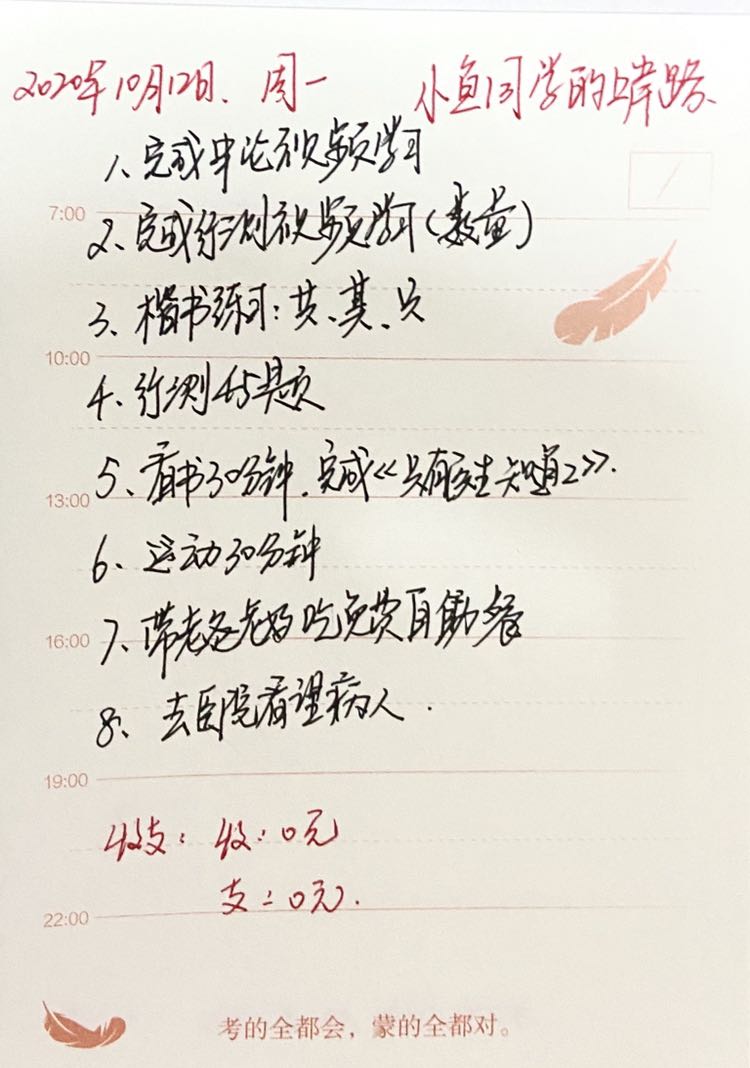 2020年10月12日、周一 小鱼同学的上岸路、
1、完成申论视频学习
7:00
2、完成行测视频学习(数量)
3、楷书练习:共、其、只
10:00
4、行测45题
5、看书30分钟.完成《只有医生知道2》.
13:00
6、运动30分钟
7、带老爸老妈吃免费自助餐
16:00
8、去医院看望病人.
19:00
收支:收:0元
支:0元.
22:00
考的全都会,蒙的全都对。